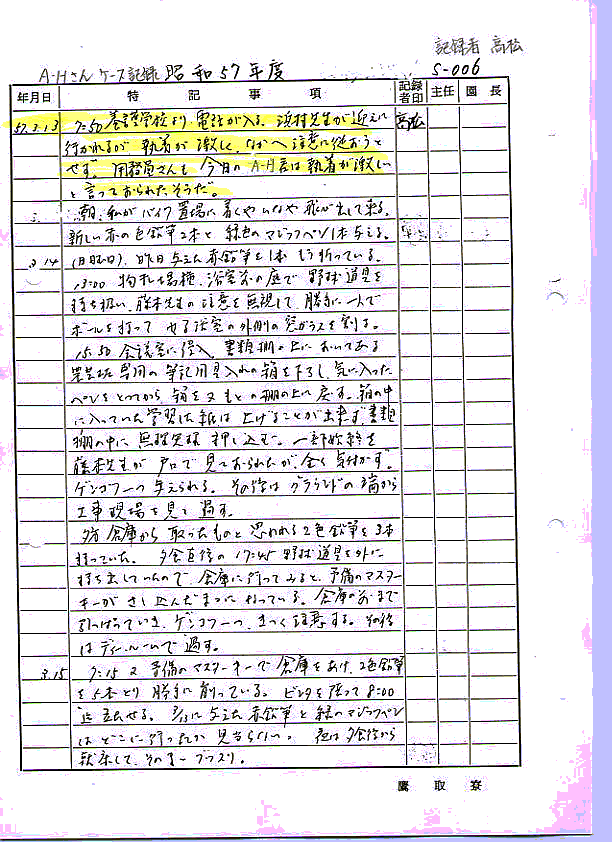 記録者 高松
A-Hさん ケース記録 昭和57年度 S-006
年月日 特記事項 記録者印 主任 園長
57.3.13 7:50 養護学校より電話が入る。浜村先生が迎えに 高松
行かれるが執着が激しく、なかへ注意に従おうと
せず。用務員さんも今日のA-H君は執着が激しい
と言っておられたそうだ。
朝、私がバイク置場に着くやいなや飛び出して来る。
新しい赤の色鉛筆2本と緑色のマジックペン1本与える。
3.14 (日曜日) 昨日与えた赤鉛筆を1本もう折っている。
13:00 浴室前の庭で野球道具を
持ち扱い、藤本先生の注意を無視して、勝手に一人で
ボールを打って 浴室の外側の窓ガラスを割る。
15:50 会議室に侵入。書類棚の上においてある
農芸班専用の筆記用具入れの箱を下ろし、気に入った
ペンをとってから、箱を又もとの棚の上に戻す。箱の中
に入っていた学習法紙は上げることが出来ず、書類
棚の中に無理矢理押し込む。一部始終を
藤本先生が戸口で見ておられたが、全く気付かず。
ゲンコツ一つ与えられる。その后はグラウンドの 端から
工事現場を見て過す。
夕方倉庫から取ったものと思われる2色鉛筆を3本
持っていた。夕食直后の17:45 野球道具を外に
持ち出していたので、倉庫に行ってみると、予備のマスター
キーがさし込んだままになっている。倉庫の前まで
引っぱっていき、ゲンコツ一つ、きつく注意する。その后
はディールームで過す。
3.15 7:15 又予備のマスターキーで倉庫をあけ、2色鉛筆
を5本とり勝手に削っている。ビンタを張って8:00
迄立たせる。3/13に与えた赤鉛筆と緑のマジックペン
はどこに行ったか見当らない。 夜は夕食后から
就床して、そのまま グッスリ。
鷹取寮